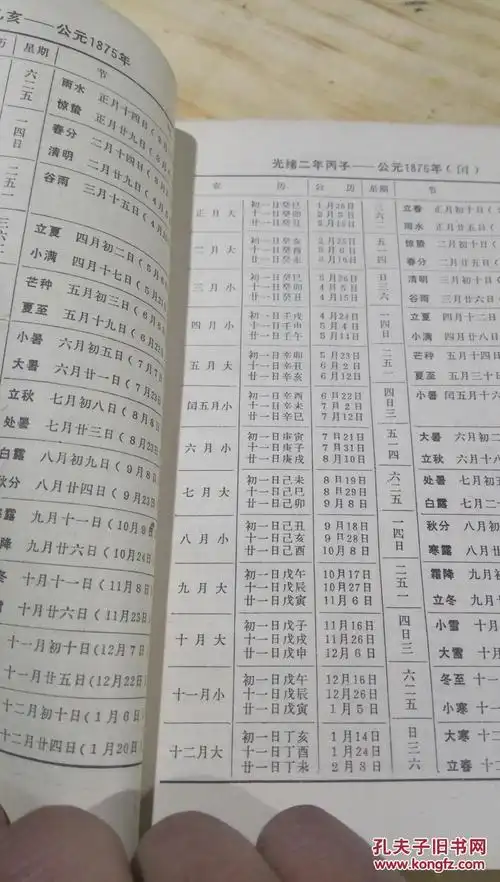 乙亥——公元1875年
历 星期 节
六二五 雨水 正月十四日(
惊蛰 正月廿九日(
一四日 春分 二月十四日(
清明 二月廿九日(
二五一 谷雨 三月十五日(4
立夏 四月初二日(5月6
小满 四月十七日(5月
芒种 五月初三日(6月
夏至 五月十九日(6月
小暑 六月初五日(7月7
大暑 六月廿一日(7月23
立秋 七月初八日(8月8
处暑 七月廿三日(8月23
白露 八月初九日(9月8
秋分 八月廿四日(9月23
寒露 九月十一日(10月9
降 九月廿六日(10月24
冬 十月十一日(11月8日
雪 十月廿六日(11月23
十一月初十日(12月7
十一月廿五日(12月22
十二月初十日(1月6日
十二月廿四日(1月20日
光绪二年丙子——公元1876年(闰)
农 历 公 历 星期 节
正月大 初一日癸巳 1月26日 三 立春 正月初十日(
十一日癸卯 2月5日 六 雨水 正月廿五日
廿一日癸丑 2月15日 二
二月大 初一日癸亥 2月25日 五 惊蛰 二月初十日(
十一日癸酉 3月6日 一 春分 二月廿五日(
廿一日癸未 3月16日 四
三月小 初一日癸巳 3月26日 日 清明 三月初十日
十一日癸卯 4月5日 三 谷雨 三月廿六日
廿一日癸丑 4月15日 六
四月小 初一日壬戌 4月24日 一 立夏 四月十二日
十一日壬申 5月4日 四 小满 四月廿八日
廿一日壬午 5月14日 日
五月大 初一日辛卯 5月23日 二 芒种 五月十四日
十一日辛丑 6月2日 五 夏至 五月三十日
廿一日辛亥 6月12日 一
闰五月小 初一日辛酉 6月22日 四 小暑 闰五月十六
十一日辛未 7月2日 日
廿一日辛巳 7月12日 三
六月小 初一日庚寅 7月21日 五 大暑 六月初二
十一日庚子 7月31日 一 立秋 六月十
廿一日庚戌 8月10日 四
七月大 初一日己未 8月19日 六 处暑 七月初五
十一日己巳 8月29日 二 白露 七月二
廿一日己卯 9月8日 五
八月小 初一日己丑 9月18日 一 秋分 八月初
十一日己亥 9月28日 四 寒露 八月
廿一日己酉 10月8日 日
九月大 初一日戊午 10月17日 二 霜降 九月
十一日戊辰 10月27日 五 立冬 九月
廿一日戊寅 11月6日 一
十月大 初一日戊子 11月16日 四 小雪 十月
十一日戊戌 11月26日 日 大雪 十月
廿一日戊申 12月6日 三
十一月小 初一日戊午 12月16日 六 冬至 十一
十一日戊辰 12月26日 二 小寒 十一
廿一日戊寅 1月5日 五
十二月大 初一日丁亥 1月14日 日 大寒 十二
十一日丁酉 1月24日 三 立春 十二
廿一日丁未 2月3日 六
孔夫子旧书网
www.kongfz.com